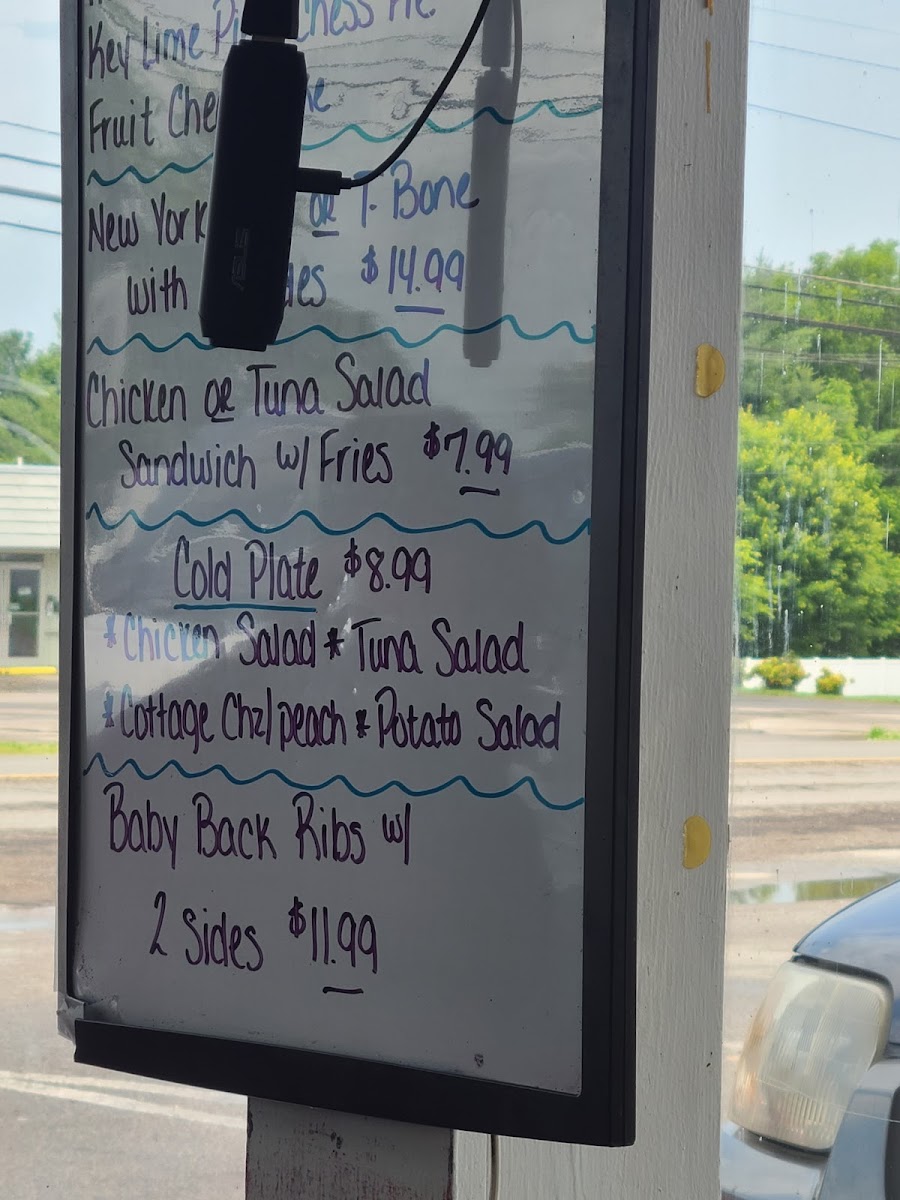 Key Lime Chess
Fruit
New York OR T-Bone
with $14.99
ASUS
Chicken OR Tuna Salad
Sandwich w/ Fries $7.99
Cold Plate $8.99
*Chicken Salad * Tuna Salad
*Cottage Chz/peach * Potato Salad
Baby Back Ribs w/
2 Sides $11.99